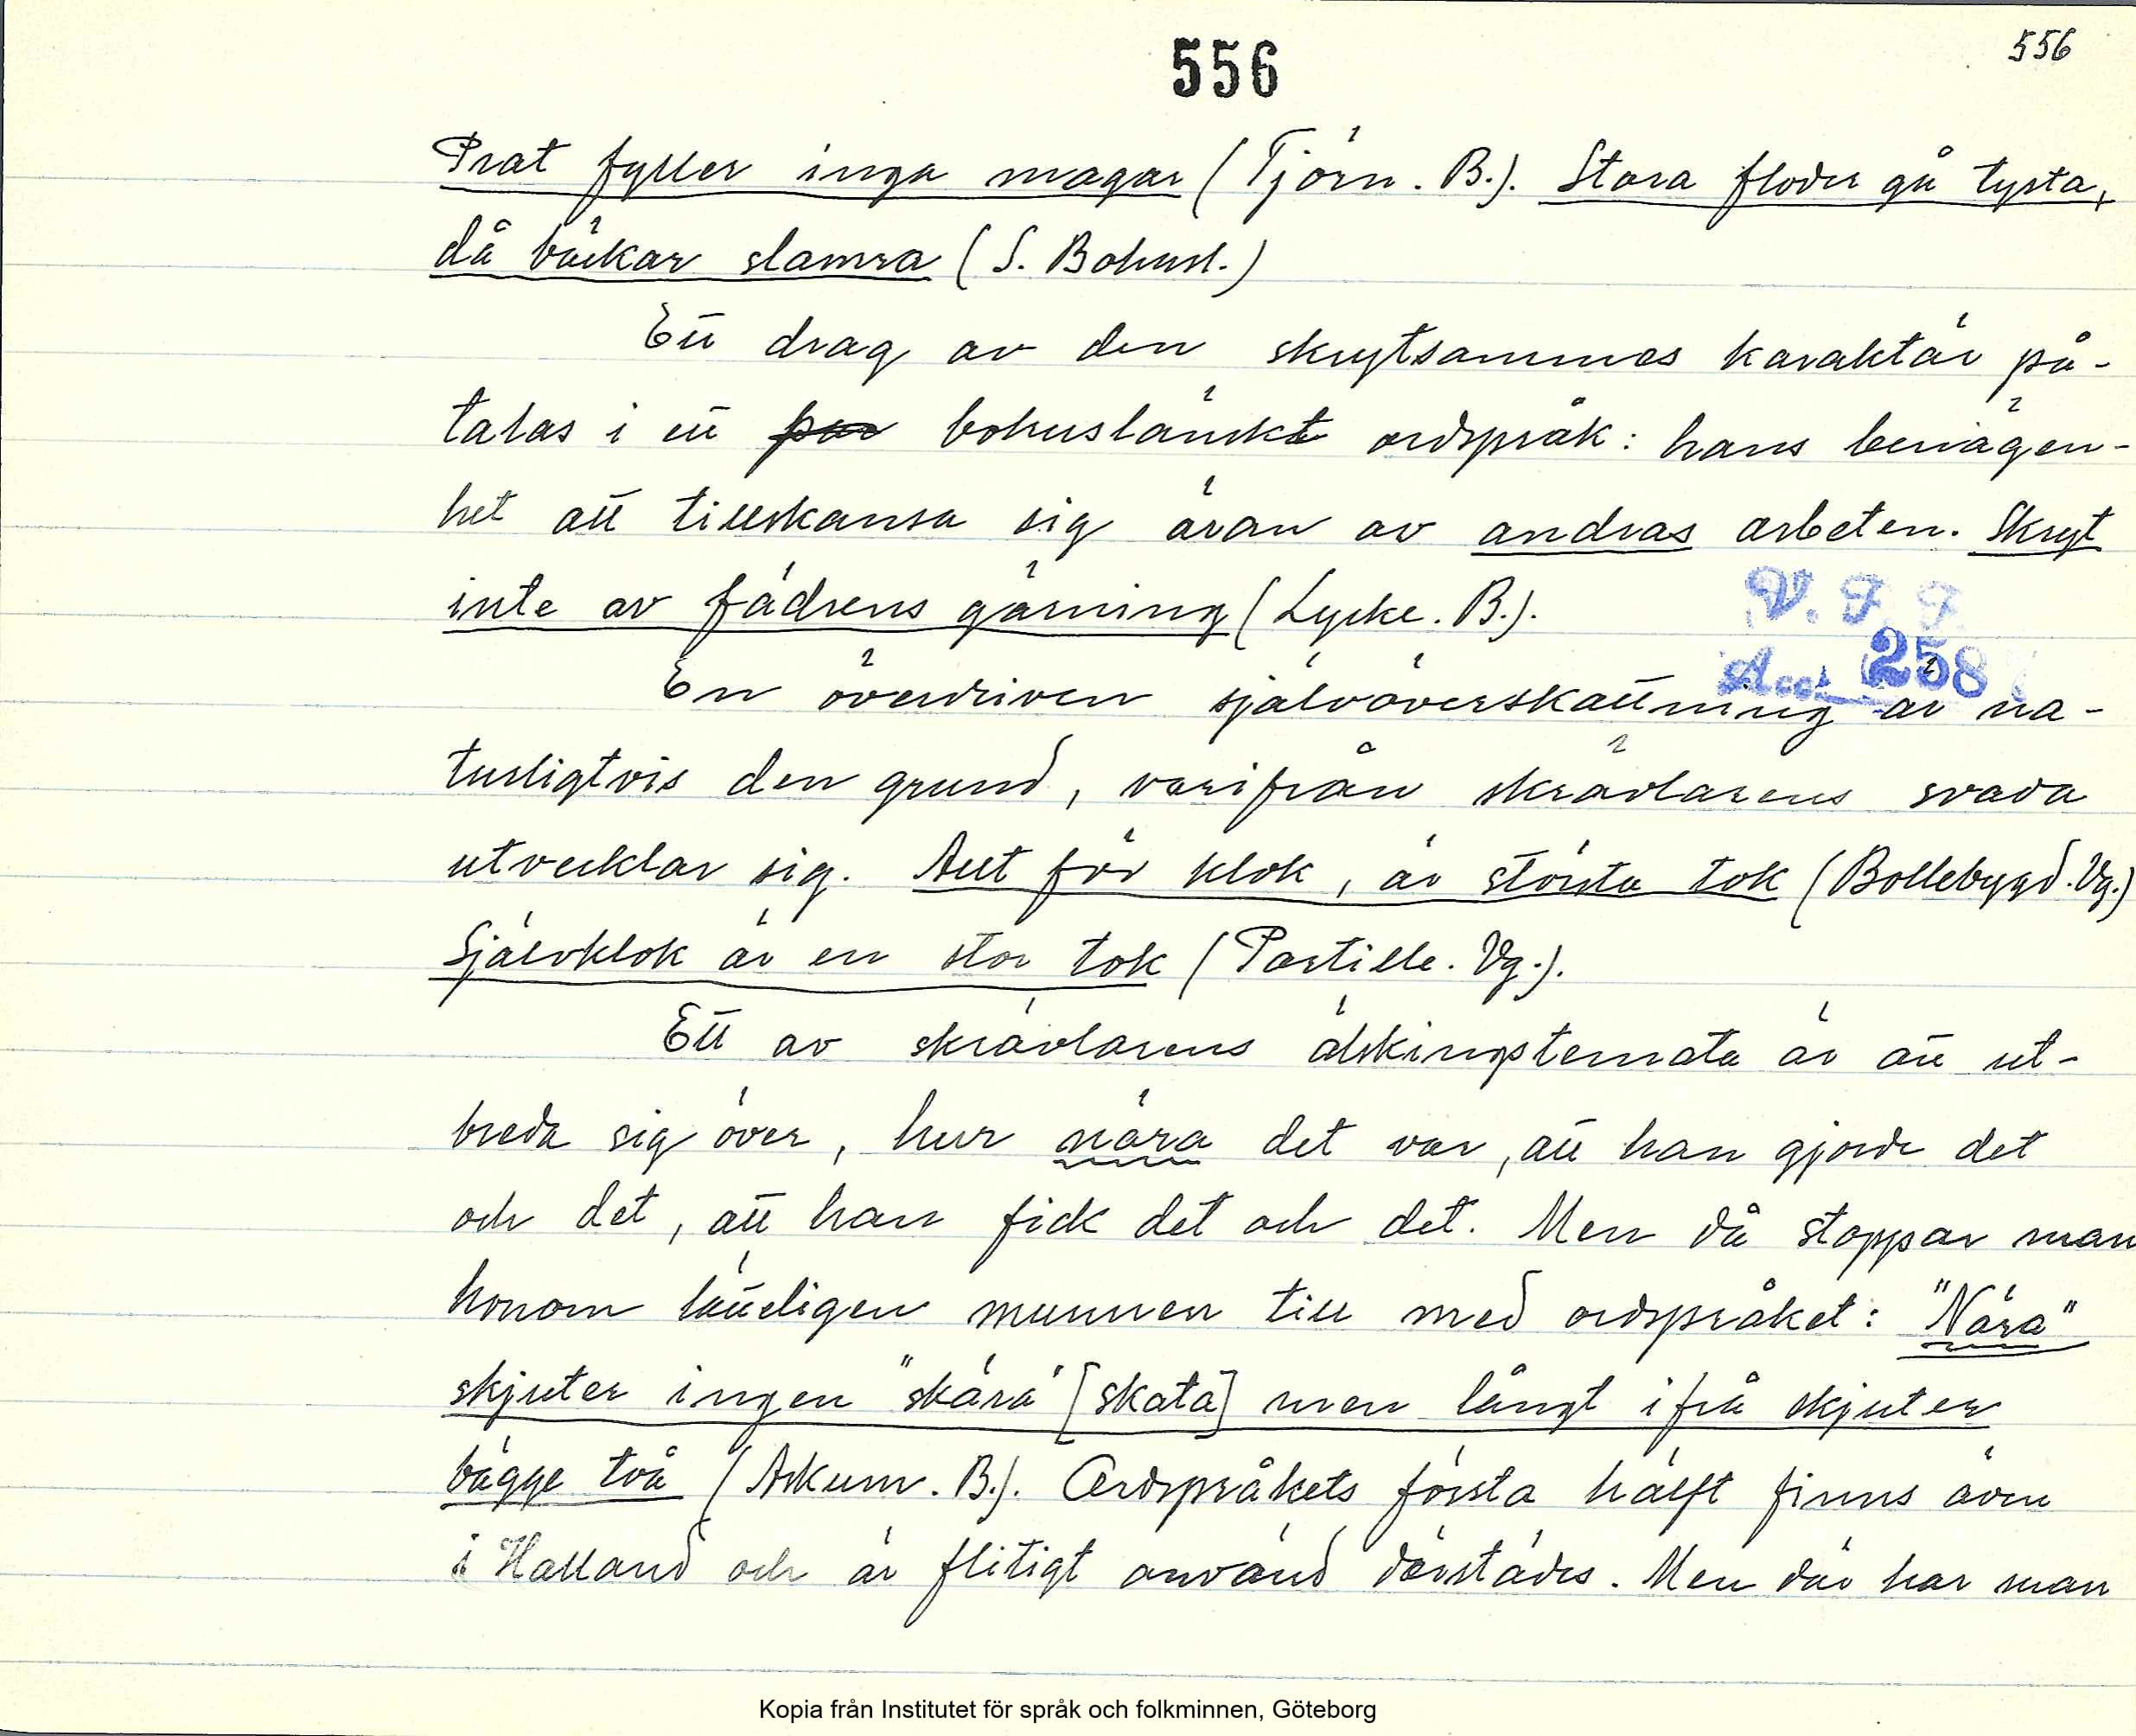 556
556
Prat fyller inga magar (Tjörn. B.). Stora floder gå tysta,
då bäckar slamra (S. Bohusl.)
Ett drag av den skrytsammes karaktär på-
talas i ett par bohuslänskt ordspråk: hans benägen-
het att tillskansa sig äran av andras arbeten. Skryt
inte av fädrens gärning (Lycke. B.).
V. F. F.
Acc. 258
En överdriven självöverskattning är na-
turligtvis den grund, varifrån skrävlarens svada
utvecklar sig. Allt för klok, är största tok (Bollebygd. Vg.)
Självklok är en stor tok (Partille. Vg.).
Ett av skrävlarens älskingstemata är att ut-
breda sig över, hur nära det var, att han gjorde det
och det, att han fick det och det. Men då stoppar man
honom lätteligen munnen till med ordspråket: "Nära"
skjuter ingen "skära" [skata] men långt ifrå skjuter
bägge två (Askum. B.). Ordspråkets första hälft finns även
i Halland och är flitigt använd därstädes. Men där har man
Kopia från Institutet för språk och folkminnen, Göteborg